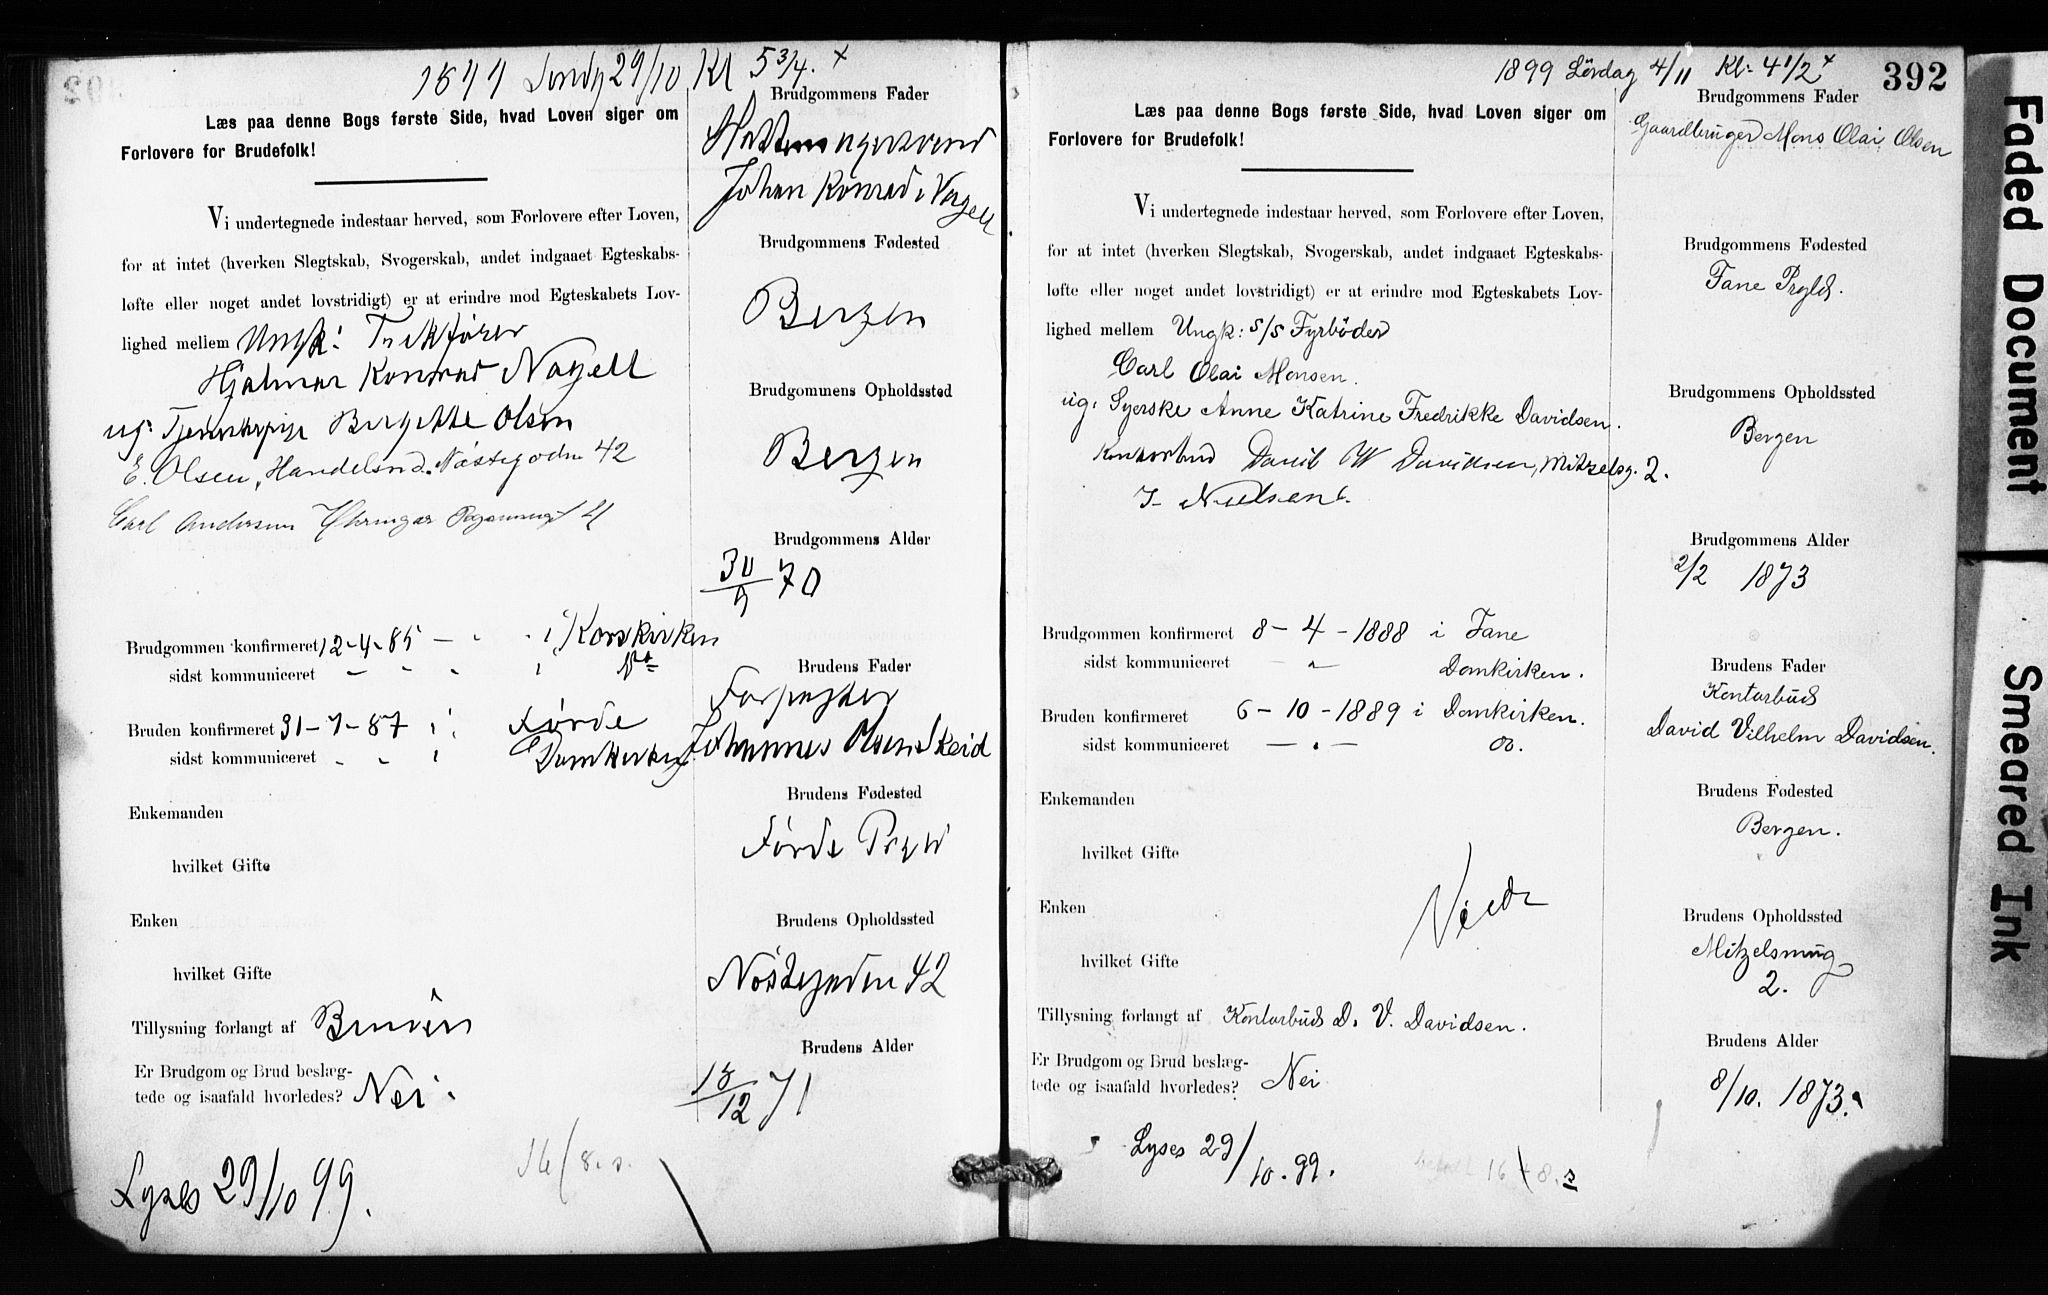 1899 Søndg 29/10 Kl 5 3/4. x
Læs paa denne Bogs første Side, hvad Loven siger om
Forlovere for Brudefolk!
Vi undertegnede indestaar herved, som Forlovere efter Loven,
for at intet (hverken Slegtskab, Svogerskab, andet indgaaet Egteskabs-
løfte eller noget andet lovstridigt) er at erindre mod Egteskabets Lov-
lighed mellem Ungk:
Hjalmar Konrad Nagell
ug. Tjenestepige Birgitte Olsen
E. Olsen, Handelsmd. Nøstegaden 42
Carl Andersen
Brudgommen konfirmeret 12-4-85 - i Korskirken
sidst kommuniceret - - - i
Bruden konfirmeret 31-7-87 i: Førde
sidst kommuniceret - - i Domkirken
Enkemanden
hvilket Gifte
Enken
hvilket Gifte
Tillysning forlangt af Bruden
Er Brudgom og Brud beslæg-
tede og isaafald hvorledes? Nei.
16/8. s.
Lyses 29/10 99.
Brudgommens Fader
Hattemagersvend
Johan Konrad Nagell
Brudgommens Fødested
Bergen
Brudgommens Opholdssted
Bergen
Brudgommens Alder
30/9 70
Brudens Fader
Forpagter
Johannes Olsen Skeid
Brudens Fødested
Førde Prgld
Brudens Opholdssted
Nøstegaden 42
Brudens Alder
18/12 71
1899 Lördag 4/11 Kl: 4 1/2 x
392
Læs paa denne Bogs første Side, hvad Loven siger om
Forlovere for Brudefolk!
Vi undertegnede indestaar herved, som Forlovere efter Loven,
for at intet (hverken Slegtskab, Svogerskab, andet indgaaet Egteskabs-
løfte eller noget andet lovstridigt) er at erindre mod Egteskabets Lov-
lighed mellem Ungk: s/s Fyrböder
Carl Olai Monsen.
ug. Syerske Anne Katrine Fredrikke Davidsen.
Kontorbud David W Davidsen, Mitzelsg. 2.
J. Nielsen
Brudgommen konfirmeret 8-4-1888 i Fane
sidst kommuniceret - " Domkirken.
Bruden konfirmeret 6-10-1889 i Domkirken.
sidst kommuniceret - " - do.
Enkemanden
hvilket Gifte
Enken
hvilket Gifte
Tillysning forlangt af Kontorbud D. V. Davidsen.
Er Brudgom og Brud beslæg-
tede og isaafald hvorledes? Nei
Lyses 29/10. 99.
16/8. s
Brudgommens Fader
Gaardbruger Mons Olai Olsen
Brudgommens Fødested
Fane Prgld.
Brudgommens Opholdssted
Bergen
Brudgommens Alder
2/2 1873
Brudens Fader
Kontorbud
David Vilhelm Davidsen.
Brudens Fødested
Bergen.
Brudens Opholdssted
Mitzelsmug
2.
Brudens Alder
8/10. 1873.
Faded Document
Smeared Ink